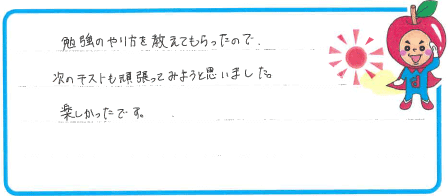 勉強のやり方を教えてもらったので、
次のテストも頑張ってみようと思いました。
楽しかったです。